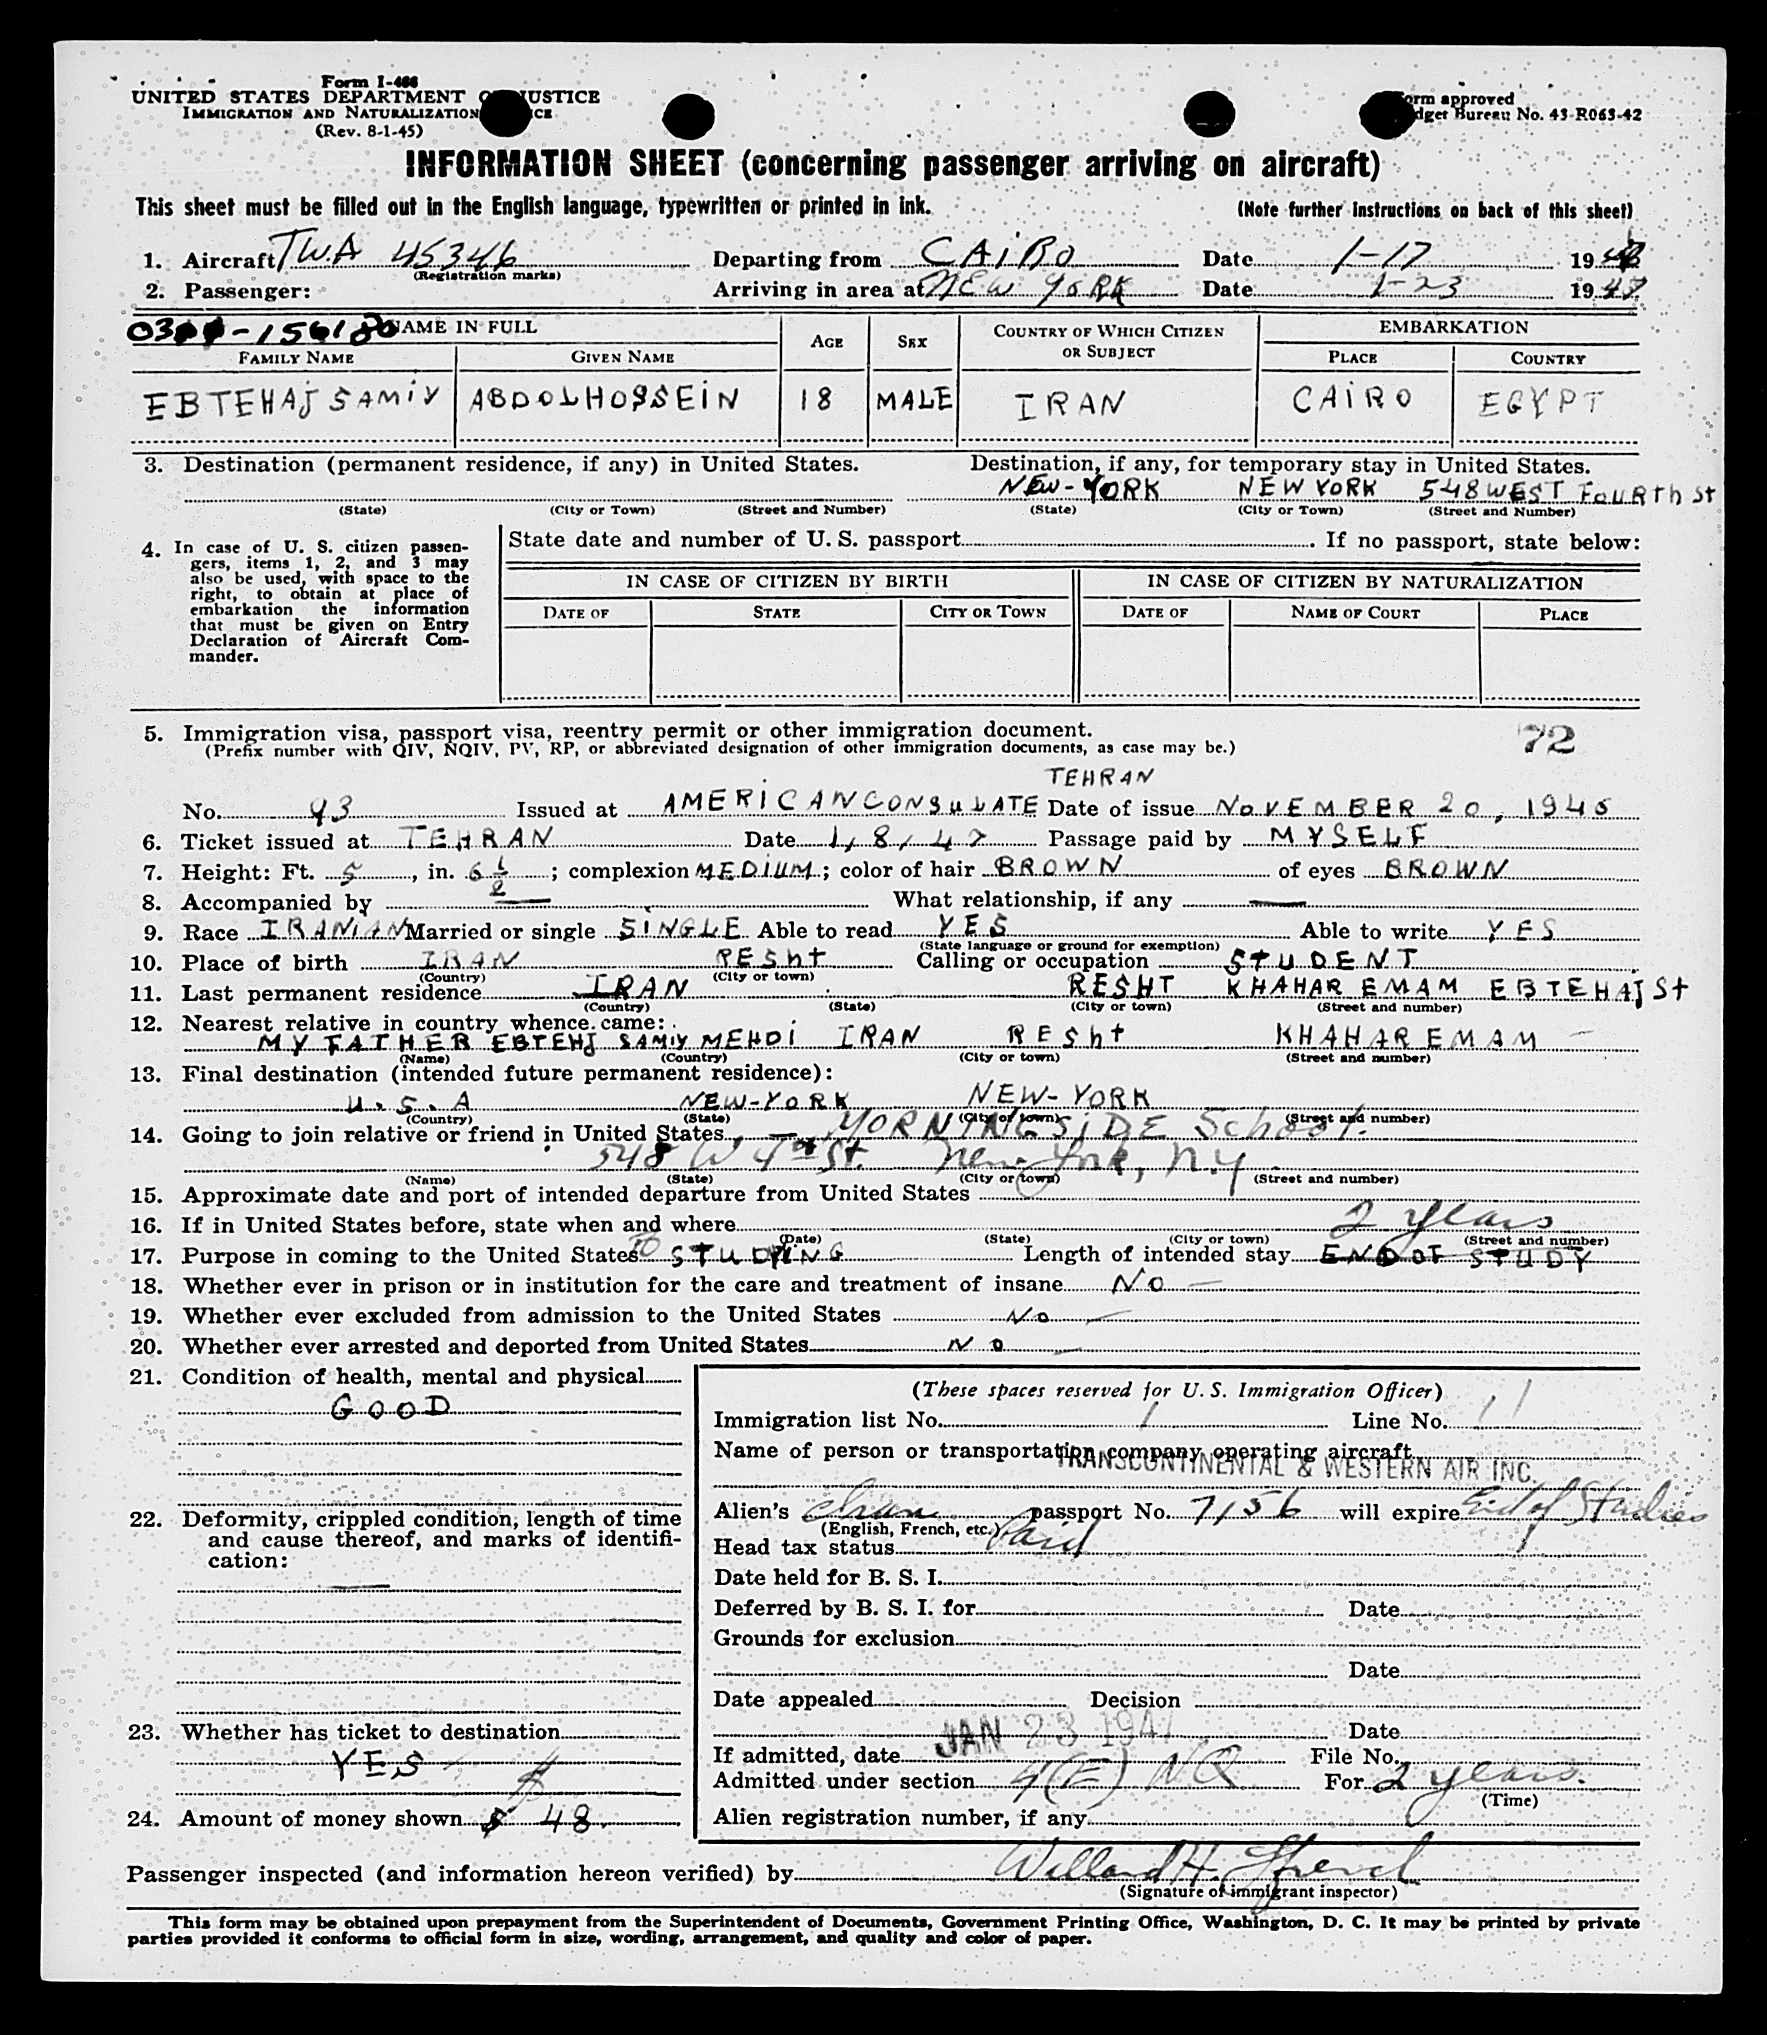 Form I-466
UNITED STATES DEPARTMENT OF JUSTICE
IMMIGRATION AND NATURALIZATION
(Rev. 8-1-45)
Form approved
Budget Bureau No. 43-R063-42
INFORMATION SHEET (concerning passenger arriving on aircraft)
This sheet must be filled out in the English language, typewritten or printed in ink. (Note further instructions on back of this sheet)
1. Aircraft TWA 45346 Departing from CAIRO Date 1-17 19
(Registration marks)
2. Passenger: Arriving in area at NEW YORK Date 1-23 1947
NAME IN FULL AGE SEX COUNTRY OF WHICH CITIZEN OR SUBJECT EMBARKATION
FAMILY NAME GIVEN NAME PLACE COUNTRY
EBTEHAJ SAMIY ABDOLHOSSEIN 18 MALE IRAN CAIRO EGYPT
3. Destination (permanent residence, if any) in United States. Destination, if any, for temporary stay in United States.
NEW-YORK NEW YORK 548 WEST FOURTH St
(State) (City or Town) (Street and Number) (State) (City or Town) (Street and Number)
4. In case of U. S. citizen passen-
gers, items 1, 2, and 3 may
also be used, with space to the
right, to obtain at place of
embarkation the information
that must be given on Entry
Declaration of Aircraft Com-
mander.
State date and number of U. S. passport. If no passport, state below:
IN CASE OF CITIZEN BY BIRTH IN CASE OF CITIZEN BY NATURALIZATION
DATE OF STATE CITY OR TOWN DATE OF NAME OF COURT PLACE
5. Immigration visa, passport visa, reentry permit or other immigration document. 72
(Prefix number with QIV, NQIV, PV, RP, or abbreviated designation of other immigration documents, as case may be.)
TEHRAN
No. 93 Issued at AMERICAN CONSULATE Date of issue NOVEMBER 20, 1946
6. Ticket issued at TEHRAN Date 1, 8, 47 Passage paid by MYSELF
7. Height: Ft. 5, in. 6 1/2; complexion MEDIUM; color of hair BROWN of eyes BROWN
8. Accompanied by — What relationship, if any —
9. Race IRANIAN Married or single SINGLE Able to read YES Able to write YES
(State language or ground for exemption)
10. Place of birth IRAN RESht Calling or occupation STUDENT
(Country) (City or town)
11. Last permanent residence IRAN RESHT KHAHAR EMAM EBTEHAJ St
(Country) (State) (City or town) (Street and number)
12. Nearest relative in country whence came:
MY FATHER EBTEHJ SAMIY MEHDI IRAN RESht KHAHAR EMAM —
(Name) (Country) (City or town) (Street and number)
13. Final destination (intended future permanent residence):
U.S.A NEW-YORK NEW-YORK
(Country) (State) (City or town) (Street and number)
14. Going to join relative or friend in United States, — MORNINGSIDE School.
548 W 4th St. New York, N.Y.
(Name) (State) (City or town) (Street and number)
15. Approximate date and port of intended departure from United States
16. If in United States before, state when and where 2 years
(Date) (State) (City or town) (Street and number)
17. Purpose in coming to the United States TO STUDYING Length of intended stay END OF STUDY
18. Whether ever in prison or in institution for the care and treatment of insane NO —
19. Whether ever excluded from admission to the United States No —
20. Whether ever arrested and deported from United States NO —
21. Condition of health, mental and physical
GOOD
22. Deformity, crippled condition, length of time
and cause thereof, and marks of identifi-
cation:
—
23. Whether has ticket to destination
YES
24. Amount of money shown $ 48.
(These spaces reserved for U. S. Immigration Officer)
Immigration list No. 1 Line No. 11
Name of person or transportation company operating aircraft
TRANSCONTINENTAL & WESTERN AIR INC.
Alien's passport No. 7156 will expire End of Studies
(English, French, etc.)
Head tax status Paid
Date held for B. S. I.
Deferred by B. S. I. for Date
Grounds for exclusion
Date
Date appealed Decision
Date
If admitted, date JAN 23 1947 File No.
Admitted under section 4(E) NQ For 2 years.
(Time)
Alien registration number, if any
Passenger inspected (and information hereon verified) by Willard H.
(Signature of immigrant inspector)
This form may be obtained upon prepayment from the Superintendent of Documents, Government Printing Office, Washington, D. C. It may be printed by private
parties provided it conforms to official form in size, wording, arrangement, and quality and color of paper.